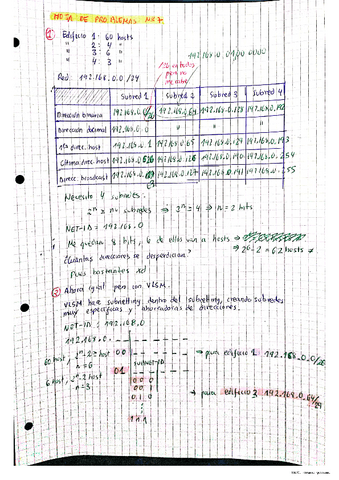 HOJA DE PROBLEMAS Nº7
① Edificio 1: 60 hosts
" 2: 4 "
" 3: 6 "
" 4: 3 "
Red: 192.168.0.0/24
Subred 1 Subred 2 Subred 3 Subred 4
Dirección binaria 192.168.0. 192.168.0.64 192.168.0.128 192.168.0.192
Dirección decimal 192.168.0.0 " " "
1ª direc. host 192.168.0.1 192.168.0.65 192.168.0.129 192.168.0.193
Última direc. host 192.168.0.62 192.168.0.126 192.168.0.190 192.168.0.254
Direcc. broadcast 192.168.0. 192.168.0.127 192.168.0.191 192.168.0.255
Necesito 4 subredes.
2ⁿ ≥ nº subredes → 2ⁿ = 4 → n = 2 bits
NET-ID = 192.168.0
Me quedan 8 bits, 6 de ellos van a hosts ⇒
⇒ 2⁶ - 2 = 62 hosts
¿Cuántas direcciones se desperdician?
Pues bastantes xd
② Ahora igual pero con VLSM.
VLSM hace subnetting dentro del subnetting, creando subredes
muy específicas y ahorradoras de direcciones.
NET-ID: 192.168.0
192.168.0.
60 host, 2ⁿ-2 ≥ host 00 → para edificio 1 192.168.0.0/26
n = 6 SUBNET-ID
6 host, 2ⁿ-2 host 01
n = 3 000 → para edificio 3 192.168.0.64/29
001
010
111